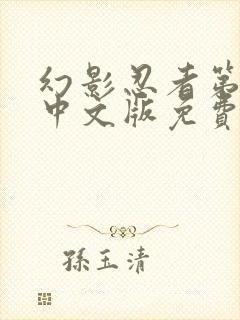 幻影忍者第
中文版免費
孫玉清